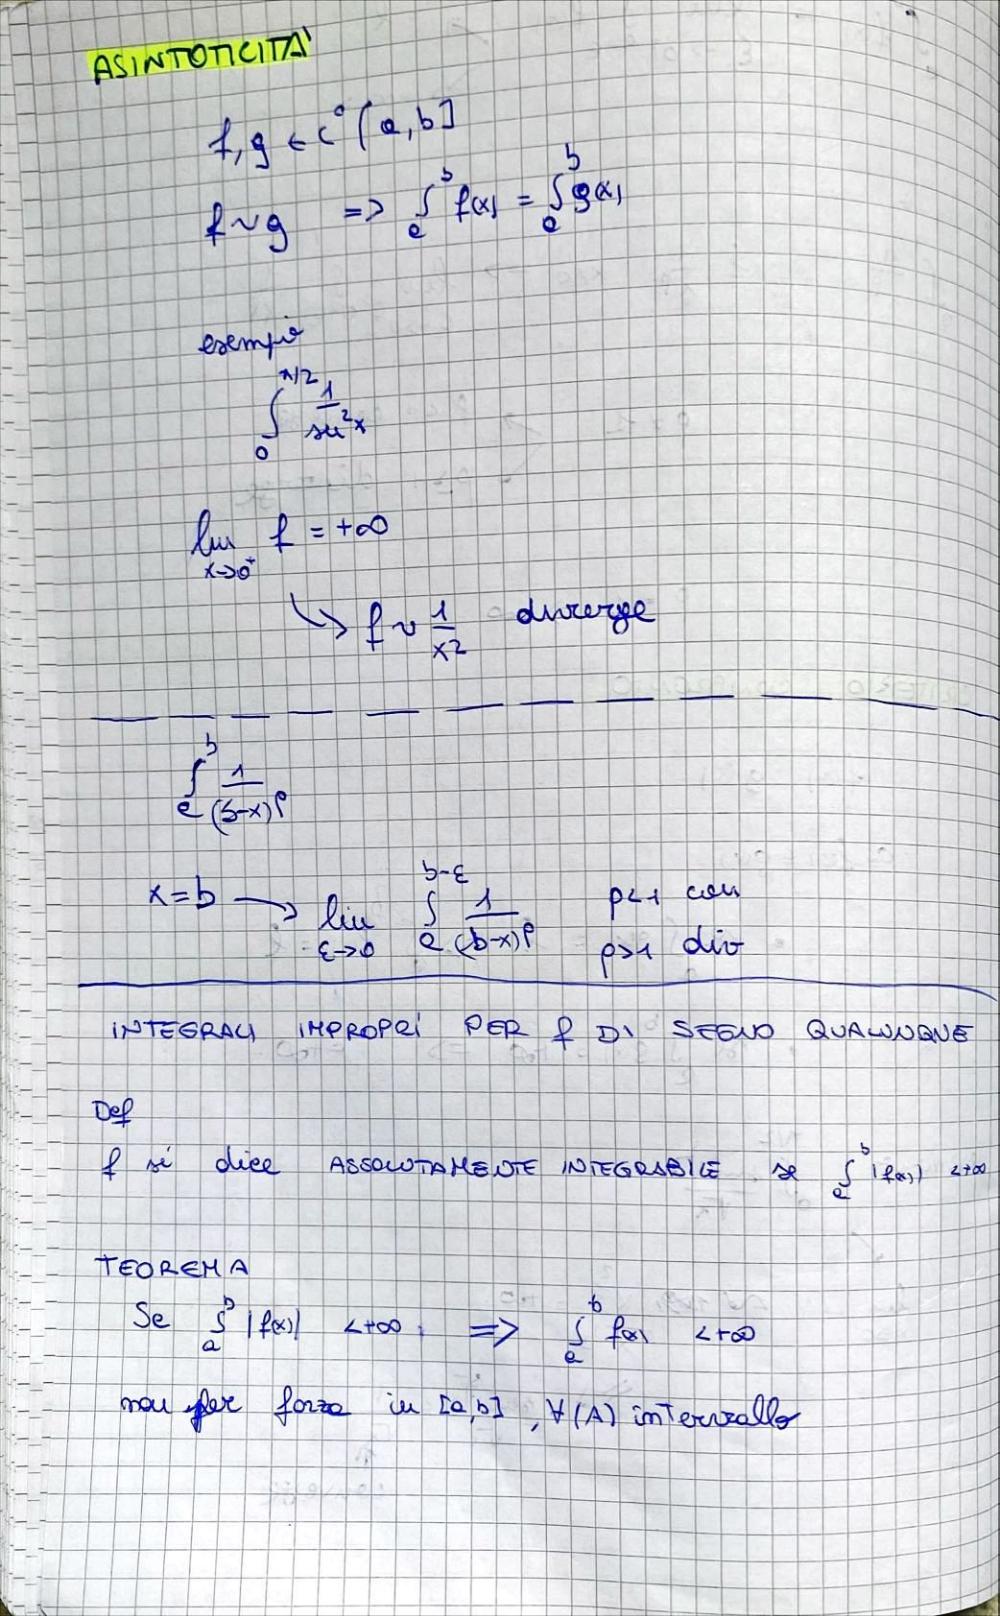 ASINTOTICITA'
f, g ∈ C⁰(a,b]
f ~ g => ∫ₐᵇ f(x) = ∫ₐᵇ g(x)
esempio
∫₀^(π/2) 1/sen²x
lim x→0⁺ f = +∞
↳ f ~ 1/x² diverge
∫ₐᵇ 1/(b-x)^p
x=b → lim ε→0 ∫ₐ^(b-ε) 1/(b-x)^p p<1 con
p>1 div
INTEGRALI IMPROPRI PER f DI SEGNO QUALUNQUE
Def
f si dice ASSOLUTAMENTE INTEGRABILE se ∫ₐᵇ |f(x)| <+∞
TEOREMA
Se ∫ₐᵇ |f(x)| <+∞ => ∫ₐᵇ f(x) <+∞
non per forza in [a,b], ∀(A) intervallo